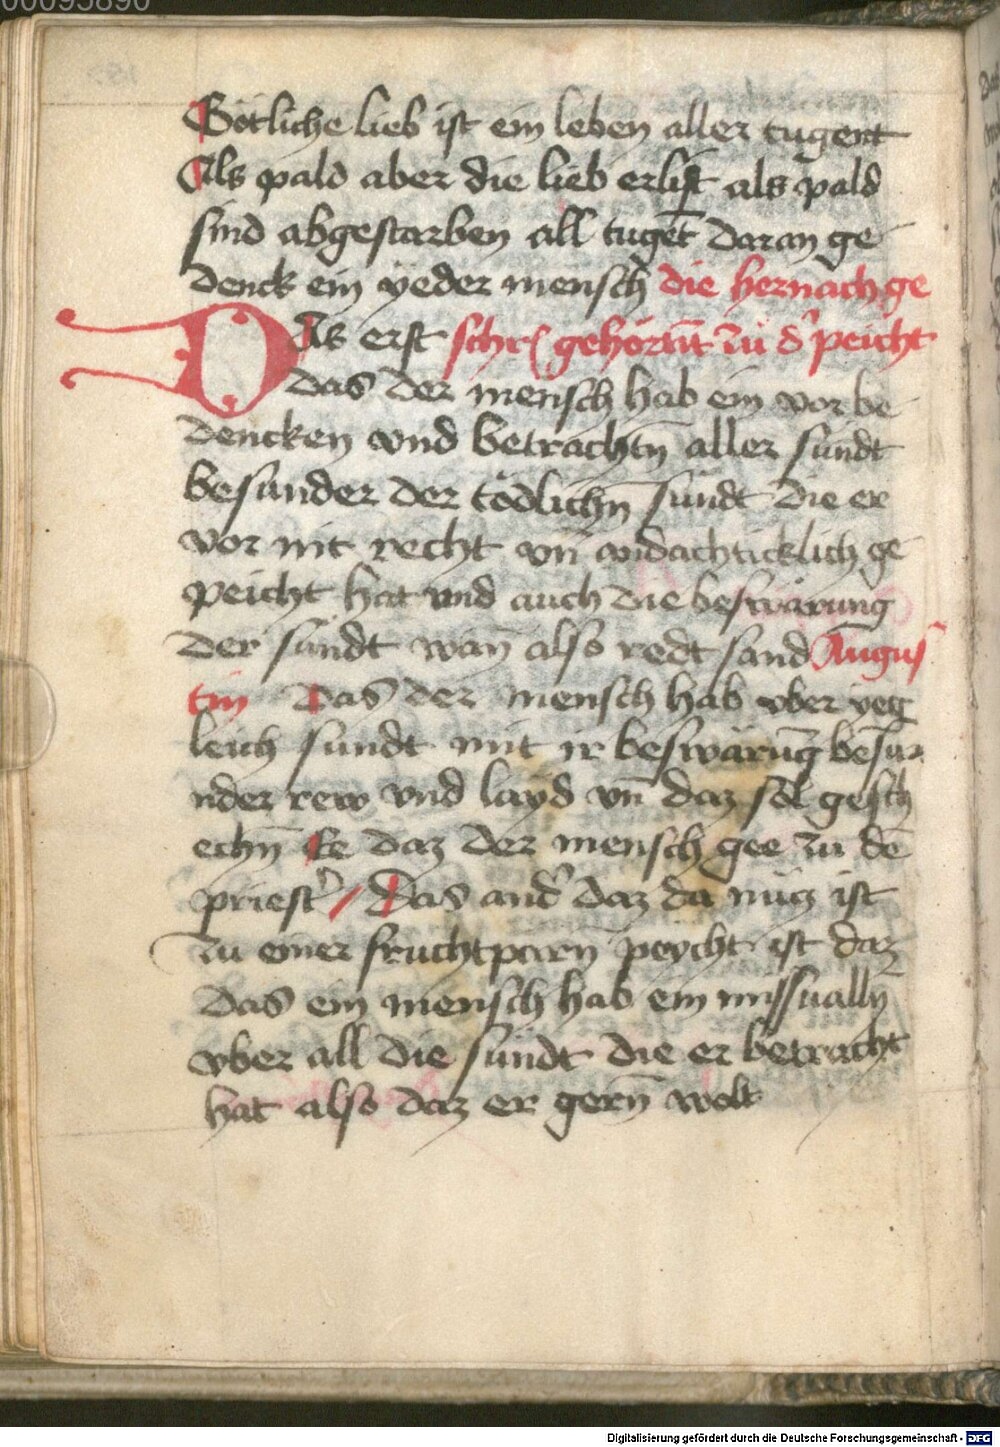 00095890
Götliche lieb ist ein leben aller tugent
Als pald aber die lieb erlist als pald
sind abgestarben all tuget̄ daran ge
denck ein yeder mensch die hernach ge
Das erst schr gehörnt̄ zu d' peicht
das der mensch hab ein vor be
dencken vnd betrachtn̄ aller sündt
besunder der tödlichn̄ sündt die er
vor nit recht vn̄ andachticklich ge
peicht hat vnd auch die beswärung
der sündt wan̄ also redt sand Augus
tin Das der mensch hab vber yeg
leich sündt mit ir beswärūg besu
nder rew vnd layd vn̄ daz sol gesch
echn̄ Ee daz der mensch gee zu dē
priest' / Das and' daz da nücz ist
zu einer fruchtparn̄ peycht ist daz
das ein mensch hab ein missualln̄
vber all die sündt die er betracht
hat also daz er gern̄ wolt
Digitalisierung gefördert durch die Deutsche Forschungsgemeinschaft - DFG